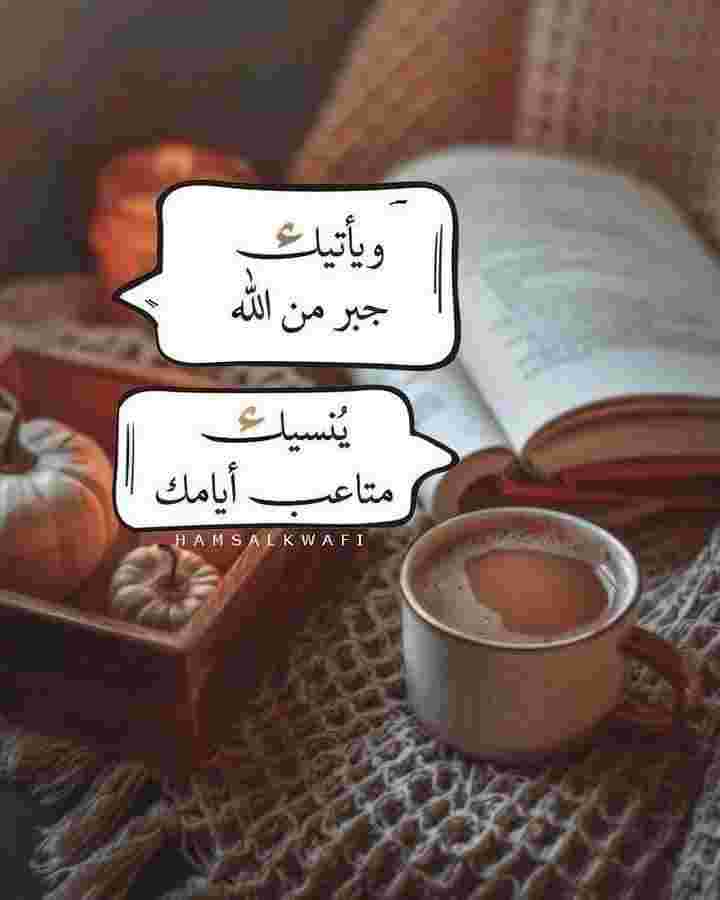 ويأتيك
جبر من الله
يُنسيك
متاعب أيامك
HAMSALKWAFI